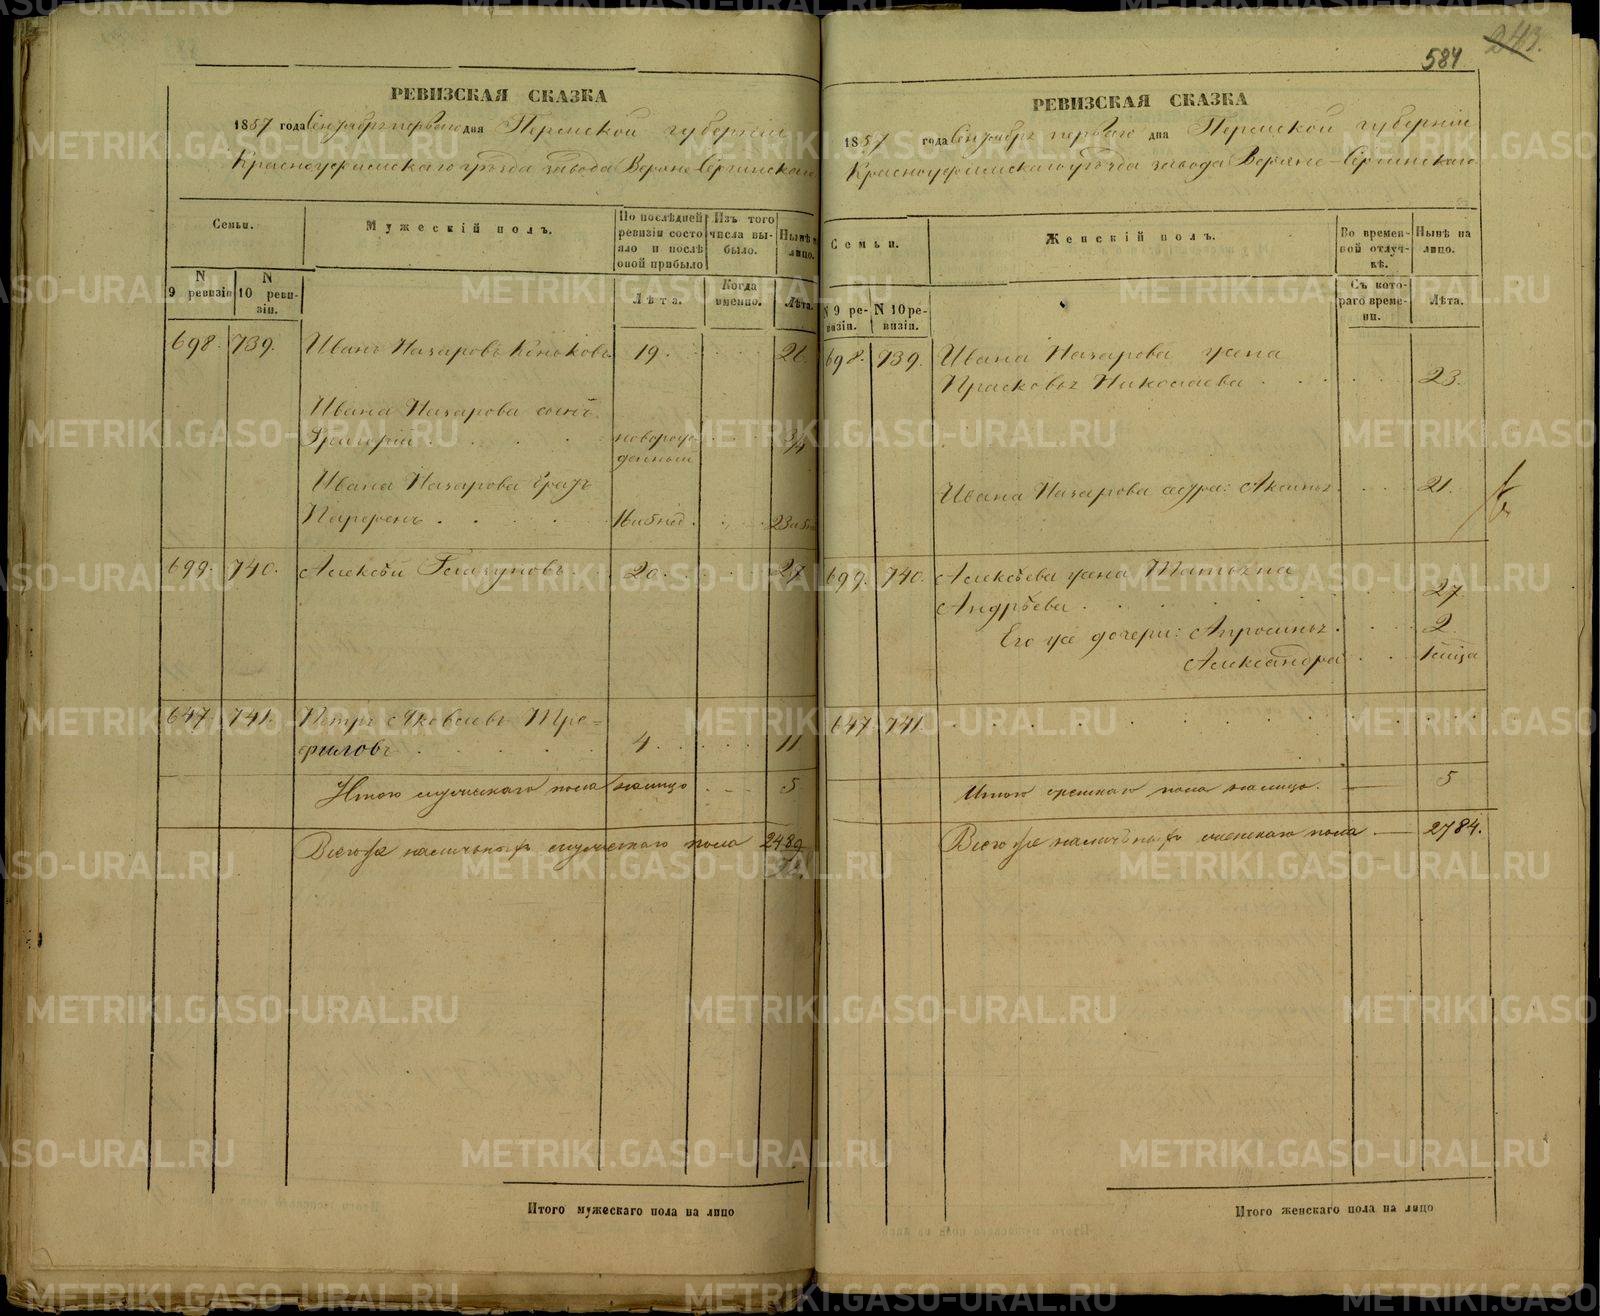 584 243.
РЕВИЗСКАЯ СКАЗКА
1857 года Сентября перваго дня Пермской губернии
Красноуфимскаго уѣзда завода Верхне-Сергинскаго
Семьи.
Мужескій полъ.
По послѣдней ревизіи состояло и послѣ оной прибыло
Изъ того числа выбыло.
Нынѣ на лицо.
N 9 ревизіи
N 10 ревизіи.
Лѣта.
Когда именно.
Лѣта.
698. 739. Иванъ Назаровъ 19. 26
Ивана Назарова сынъ
Григорій новорожденный 3/4
Ивана Назарова братъ
Парфенъ 23
699. 740. Алексѣй Глазуновъ 20. 27
647. 741. Петръ Яковлевъ Тре=
филовъ 4 11
Итого мужескаго пола налицо 5
Всего же наличныхъ мужескаго пола 2489
Итого мужескаго пола на лицо
РЕВИЗСКАЯ СКАЗКА
1857 года Сентября перваго дня Пермской губерніи
Красноуфимскаго уѣзда завода Верхне-Сергинскаго
Семьи.
Женскій полъ.
Во временной отлучкѣ.
Нынѣ на лицо.
N 9 ревизіи.
N 10 ревизіи.
Съ котораго времени.
Лѣта.
698. 739. Ивана Назарова жена
Прасковья Николаева 23.
Ивана Назарова сестра: 21.
699. 740. Алексѣева жена Татьяна
Андрѣева 27
Его же дочери: Апросинья 2
Александра
647 741
Итого женскаго пола налицо. 5
Всего же наличныхъ женскаго пола 2784.
Итого женскаго пола на лицо
METRIKI.GASO-URAL.RU